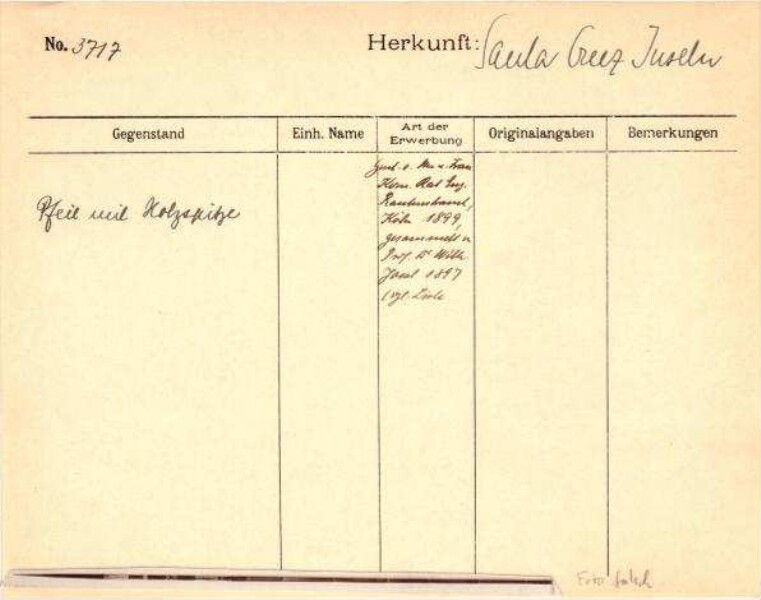 No. 3717
Herkunft: Santa Cruz Inseln
Gegenstand
Einh. Name
Art der
Erwerbung
Originalangaben
Bemerkungen
Pfeil mit Holzspitze
Gesch. v. Hr. u. Frau
Kom. Rat Eug.
Rautenstrauch,
Köln 1899,
gesammelt v.
Prof. Dr Wilh.
Joest 1897
(vgl. Liste
Foto falsch